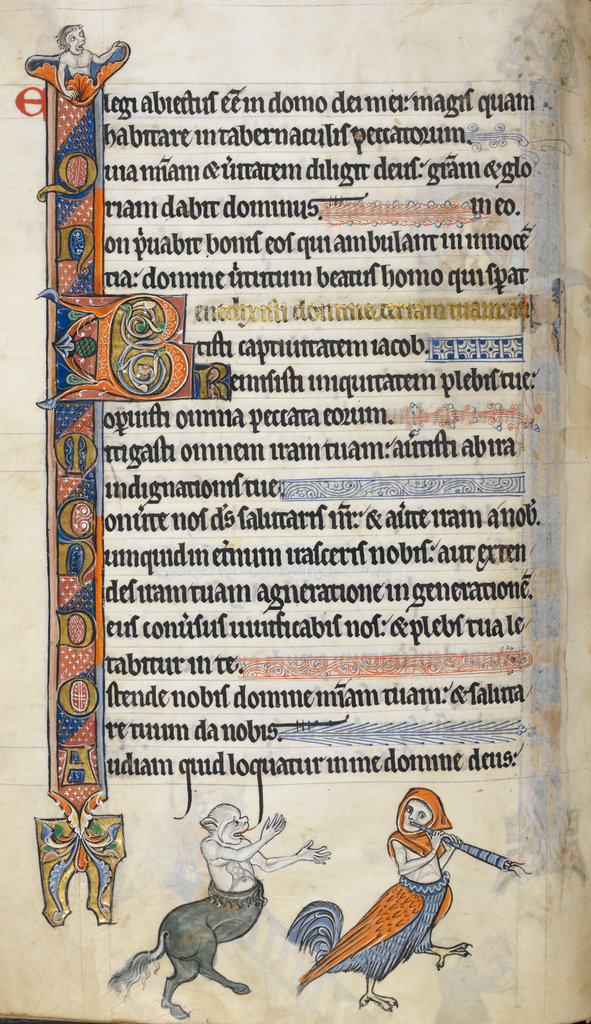 Elegi abiectus eē in domo dei mei: magis quam
habitare in tabernaculis peccatorum.
Quia miām & ūitatem diligit deus: grām & glo
riam dabit dominus. in eo.
Non p̄uabit bonis eos qui ambulant in innocē
tia: domine ūtutum beatus homo qui sperat
Benedixisti domine terram tuam: auer
tisti captiuitatem iacob.
Remisisti iniquitatem plebis tue:
op̄uisti omnia peccata eorum.
Mitigasti omnem iram tuam: aūtisti ab ira
indignationis tue.
Conūte nos d̄s salutaris n̄r: & aūte iram a nob̄.
Numquid in et̄num irasceris nobis: aut exten
des iram tuam a generatione in generationē.
Deus conūsus uiuificabis nos: & plebs tua le
tabitur in te.
Ostende nobis domine miām tuam: & saluta
re tuum da nobis.
Audiam quid loquatur in me domine deus: